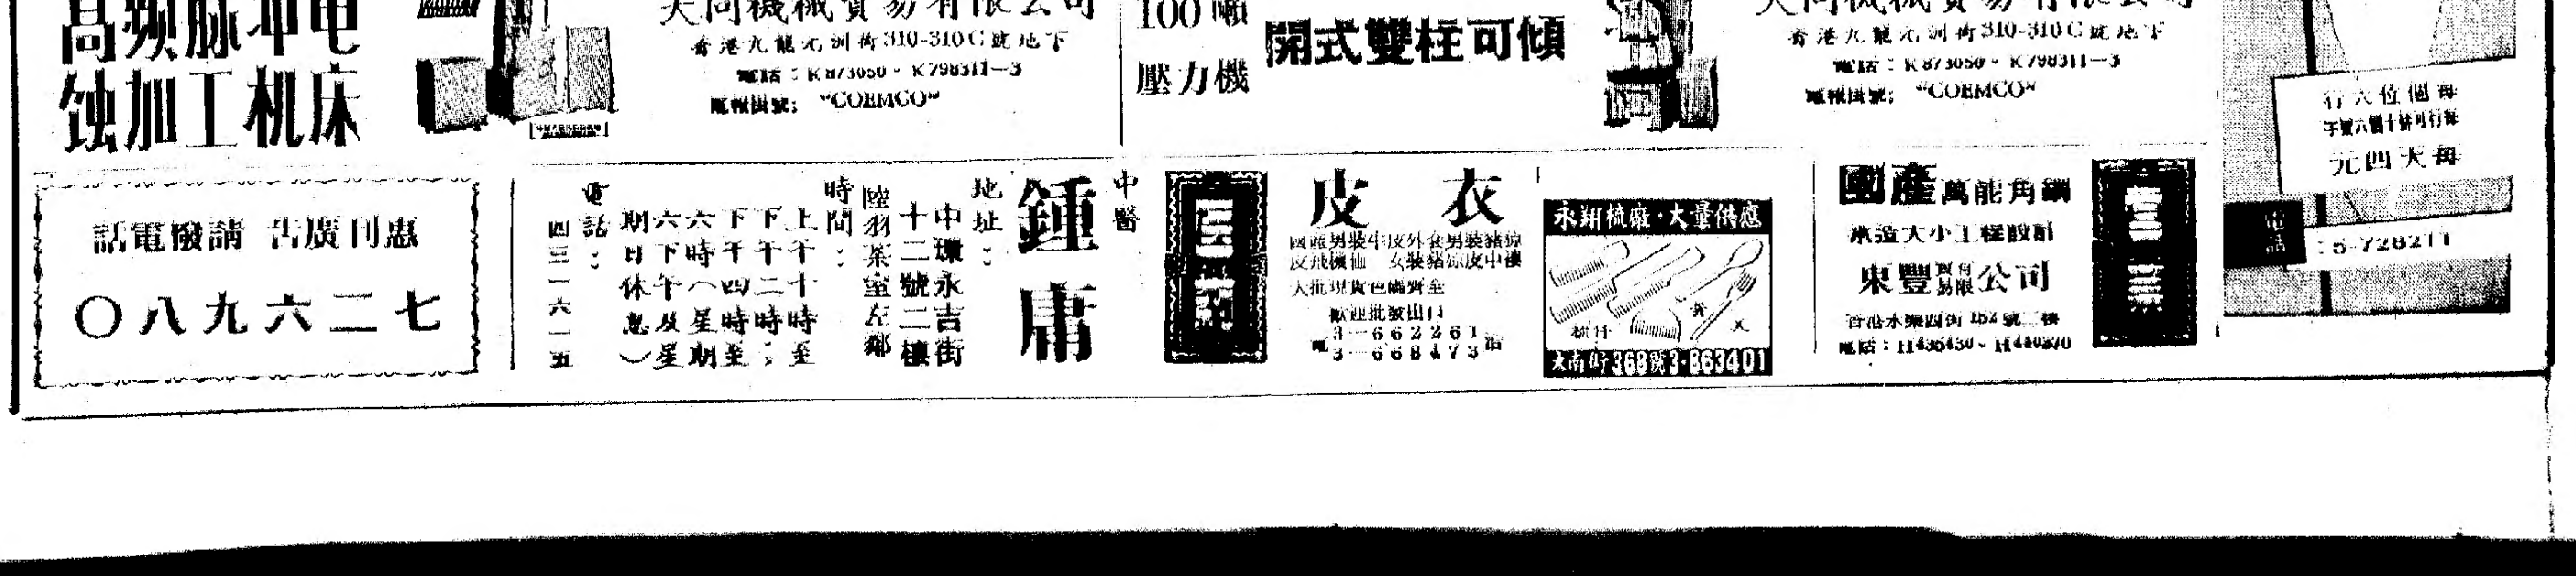 高频脉冲电
蚀加工机床
大同機械貿易有限公司
香港九龍元洲街310-310C號地下
電話：K873050・K798311—3
電報掛號："COEMCO"
100噸
壓力機
開式雙柱可傾
大同機械貿易有限公司
香港九龍元洲街310-310C號地下
電話：K873050・K798311—3
電報掛號："COEMCO"
每個位六行
每行可排十個六號字
每天四元
電話：5-728211
惠刊廣告 請撥電話
七二六九八〇
中醫
鍾庸
地址：
中環永吉街
十二號二樓
陸羽茶室左鄰
時間：
上午十時至
下午二時；
下午四時至
六時（星期
六下午及星
期日休息）
電話：
四三一六一五
皮衣
國產男裝牛皮外套男裝豬猄
皮飛機恤 女裝豬猄皮中褸
大批現貨色碼齊全
歡迎批發出口
電 3—662261
3—668473 洽
永翔梳廠・大量供應
梳仔
叉
大南街369號3-863401
國產萬能角鋼
承造大小工程設計
東豐貿易有限公司
香港水渠四街152號二樓
電話：H435430・H440870